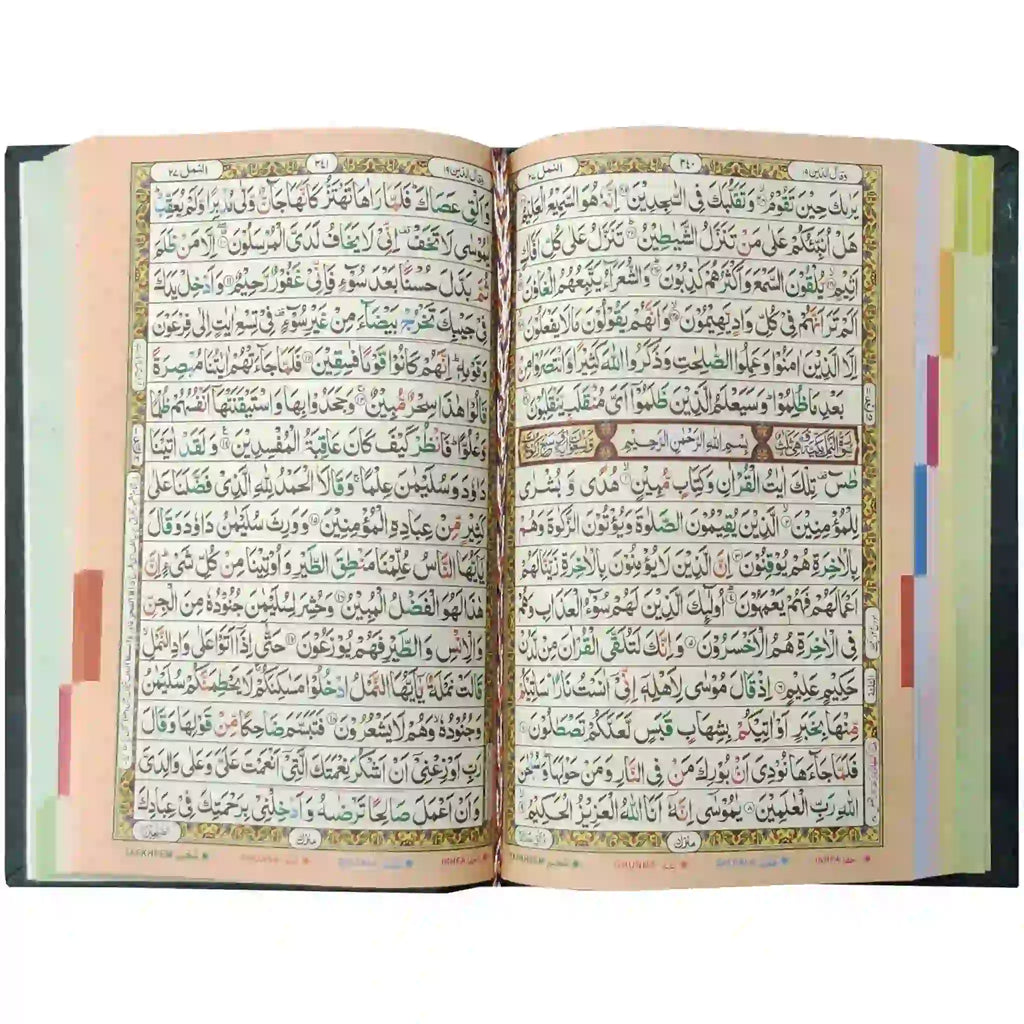 وقال الذين ١٩
٣٤٠
النمل ٢٧
يَرٰىكَ حِيْنَ تَقُوْمُ ۙ﴿۲۱۸﴾ وَتَقَلُّبَكَ فِى السّٰجِدِيْنَ ﴿۲۱۹﴾ اِنَّهٗ هُوَ السَّمِيْعُ الْعَلِيْمُ
هَلْ اُنَبِّئُكُمْ عَلٰى مَنْ تَنَزَّلُ الشَّيٰطِيْنُ ؕ﴿۲۲۱﴾ تَنَزَّلُ عَلٰى كُلِّ اَفَّاكٍ
اَثِيْمٍ ۙ﴿۲۲۲﴾ يُّلْقُوْنَ السَّمْعَ وَاَكْثَرُهُمْ كٰذِبُوْنَ ؕ﴿۲۲۳﴾ وَالشُّعَرَآءُ يَتَّبِعُهُمُ الْغَاوٗنَ
اَلَمْ تَرَ اَنَّهُمْ فِىْ كُلِّ وَادٍ يَّهِيْمُوْنَ ۙ﴿۲۲۵﴾ وَاَنَّهُمْ يَقُوْلُوْنَ مَا لَا يَفْعَلُوْنَ
اِلَّا الَّذِيْنَ اٰمَنُوْا وَعَمِلُوا الصّٰلِحٰتِ وَذَكَرُوا اللّٰهَ كَثِيْرًا وَّانْتَصَرُوْا مِنْۢ
بَعْدِ مَا ظُلِمُوْا ؕ وَسَيَعْلَمُ الَّذِيْنَ ظَلَمُوْۤا اَىَّ مُنْقَلَبٍ يَّنْقَلِبُوْنَ
بِسْمِ اللّٰهِ الرَّحْمٰنِ الرَّحِيْمِ
طٰسٓ ۚ تِلْكَ اٰيٰتُ الْقُرْاٰنِ وَكِتَابٍ مُّبِيْنٍ ۙ﴿۱﴾ هُدًى وَّبُشْرٰى
لِلْمُؤْمِنِيْنَ ۙ﴿۲﴾ الَّذِيْنَ يُقِيْمُوْنَ الصَّلٰوةَ وَيُؤْتُوْنَ الزَّكٰوةَ وَهُمْ
بِالْاٰخِرَةِ هُمْ يُوْقِنُوْنَ ﴿۳﴾ اِنَّ الَّذِيْنَ لَا يُؤْمِنُوْنَ بِالْاٰخِرَةِ زَيَّنَّا لَهُمْ
اَعْمَالَهُمْ فَهُمْ يَعْمَهُوْنَ ؕ﴿۴﴾ اُولٰٓئِكَ الَّذِيْنَ لَهُمْ سُوْٓءُ الْعَذَابِ وَهُمْ
فِى الْاٰخِرَةِ هُمُ الْاَخْسَرُوْنَ ﴿۵﴾ وَاِنَّكَ لَتُلَقَّى الْقُرْاٰنَ مِنْ لَّدُنْ
حَكِيْمٍ عَلِيْمٍ ﴿۶﴾ اِذْ قَالَ مُوْسٰى لِاَهْلِهٖۤ اِنِّىْۤ اٰنَسْتُ نَارًا ؕ سَاٰتِيْكُمْ
مِّنْهَا بِخَبَرٍ اَوْ اٰتِيْكُمْ بِشِهَابٍ قَبَسٍ لَّعَلَّكُمْ تَصْطَلُوْنَ ﴿۷﴾
فَلَمَّا جَآءَهَا نُوْدِىَ اَنْۢ بُوْرِكَ مَنْ فِى النَّارِ وَمَنْ حَوْلَهَا ؕ وَسُبْحٰنَ
اللّٰهِ رَبِّ الْعٰلَمِيْنَ ﴿۸﴾ يٰمُوْسٰۤى اِنَّهٗۤ اَنَا اللّٰهُ الْعَزِيْزُ الْحَكِيْمُ ۙ﴿۹﴾
منزل
TAFKHEEM تفخيم
GHUNNA غنه
QALQALA قلقله
IKHFA اخفا
وقال الذين ١٩
٣٤١
النمل ٢٧
وَاَلْقِ عَصَاكَ ؕ فَلَمَّا رَاٰهَا تَهْتَزُّ كَاَنَّهَا جَآنٌّ وَّلّٰى مُدْبِرًا وَّلَمْ يُعَقِّبْ ؕ
يٰمُوْسٰى لَا تَخَفْ ۟ اِنِّىْ لَا يَخَافُ لَدَىَّ الْمُرْسَلُوْنَ ﴿۱۰﴾ اِلَّا مَنْ ظَلَمَ
ثُمَّ بَدَّلَ حُسْنًۢا بَعْدَ سُوْٓءٍ فَاِنِّىْ غَفُوْرٌ رَّحِيْمٌ ﴿۱۱﴾ وَاَدْخِلْ يَدَكَ
فِىْ جَيْبِكَ تَخْرُجْ بَيْضَآءَ مِنْ غَيْرِ سُوْٓءٍ ۟ فِىْ تِسْعِ اٰيٰتٍ اِلٰى فِرْعَوْنَ
وَقَوْمِهٖ ؕ اِنَّهُمْ كَانُوْا قَوْمًا فٰسِقِيْنَ ﴿۱۲﴾ فَلَمَّا جَآءَتْهُمْ اٰيٰتُنَا مُبْصِرَةً
قَالُوْا هٰذَا سِحْرٌ مُّبِيْنٌ ۚ﴿۱۳﴾ وَجَحَدُوْا بِهَا وَاسْتَيْقَنَتْهَاۤ اَنْفُسُهُمْ ظُلْمًا
وَّعُلُوًّا ؕ فَانْظُرْ كَيْفَ كَانَ عَاقِبَةُ الْمُفْسِدِيْنَ ﴿۱۴﴾ وَلَقَدْ اٰتَيْنَا
دَاوٗدَ وَسُلَيْمٰنَ عِلْمًا ۚ وَقَالَا الْحَمْدُ لِلّٰهِ الَّذِىْ فَضَّلَنَا عَلٰى
كَثِيْرٍ مِّنْ عِبَادِهِ الْمُؤْمِنِيْنَ ﴿۱۵﴾ وَوَرِثَ سُلَيْمٰنُ دَاوٗدَ وَقَالَ
يٰۤاَيُّهَا النَّاسُ عُلِّمْنَا مَنْطِقَ الطَّيْرِ وَاُوْتِيْنَا مِنْ كُلِّ شَىْءٍ ؕ اِنَّ
هٰذَا لَهُوَ الْفَضْلُ الْمُبِيْنُ ﴿۱۶﴾ وَحُشِرَ لِسُلَيْمٰنَ جُنُوْدُهٗ مِنَ الْجِنِّ
وَالْاِنْسِ وَالطَّيْرِ فَهُمْ يُوْزَعُوْنَ ﴿۱۷﴾ حَتّٰۤى اِذَاۤ اَتَوْا عَلٰى وَادِ النَّمْلِ ۙ
قَالَتْ نَمْلَةٌ يّٰۤاَيُّهَا النَّمْلُ ادْخُلُوْا مَسٰكِنَكُمْ ۚ لَا يَحْطِمَنَّكُمْ سُلَيْمٰنُ
وَجُنُوْدُهٗ ۙ وَهُمْ لَا يَشْعُرُوْنَ ﴿۱۸﴾ فَتَبَسَّمَ ضَاحِكًا مِّنْ قَوْلِهَا وَقَالَ
رَبِّ اَوْزِعْنِىْۤ اَنْ اَشْكُرَ نِعْمَتَكَ الَّتِىْۤ اَنْعَمْتَ عَلَىَّ وَعَلٰى وَالِدَىَّ
وَاَنْ اَعْمَلَ صَالِحًا تَرْضٰىهُ وَاَدْخِلْنِىْ بِرَحْمَتِكَ فِىْ عِبَادِكَ
منزل
TAFKHEEM تفخيم
GHUNNA غنه
QALQALA قلقله
IKHFA اخفا